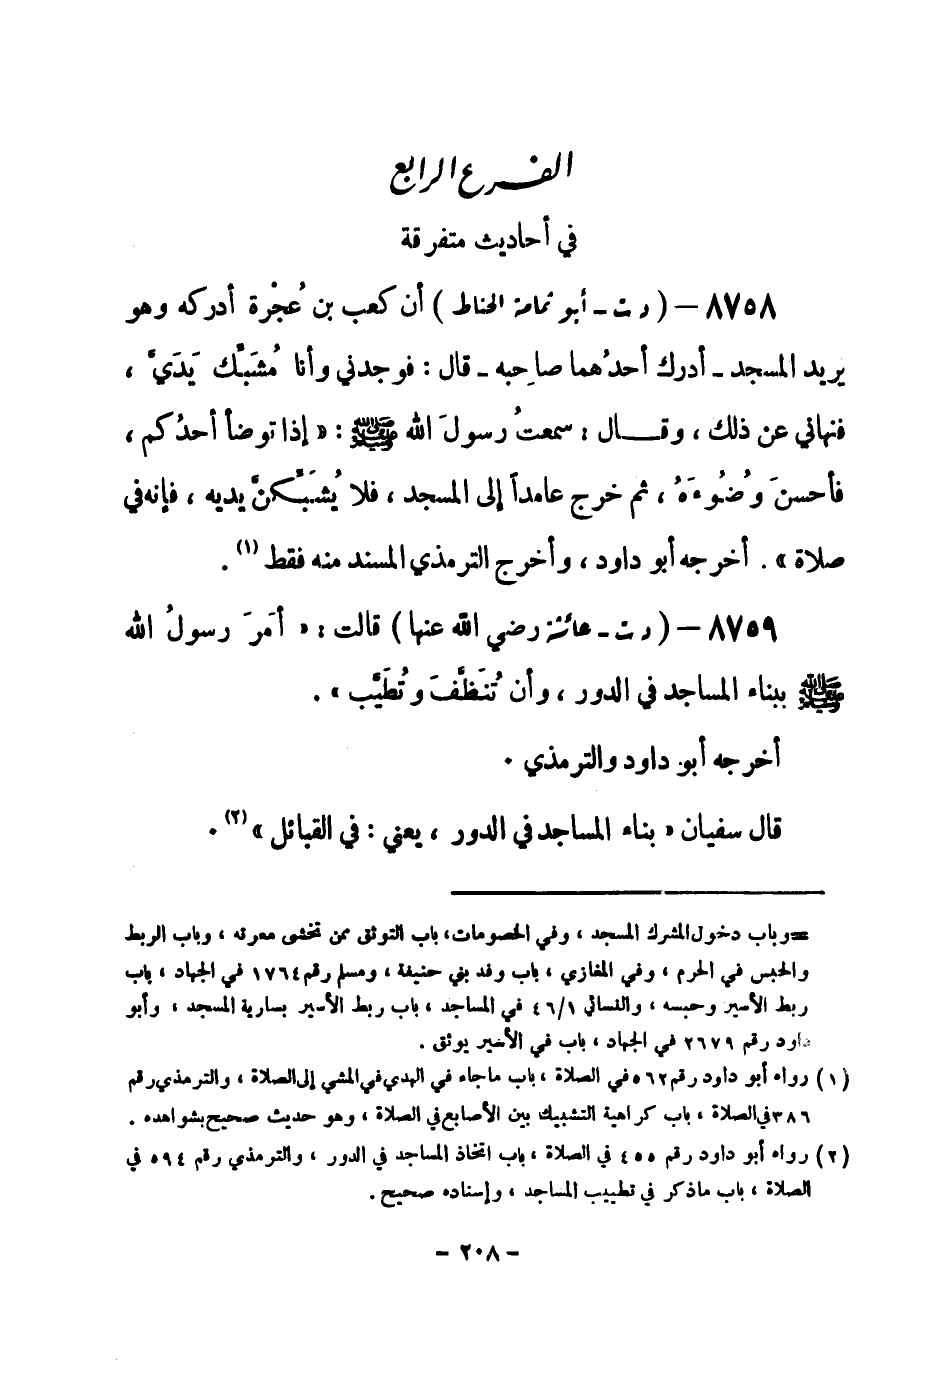 الفرع الرابع
في أحاديث متفرقة
٨٧٥٨ – ( د ت ـ أبو ثمامة الحناط ) أن كعب بن عُجْرة أدركه وهو
يريد المسجد ـ أدرك أحدُهما صاحِبه ـ قال : فوجدني وأنا مُشَبِّك يَدَيَّ ،
فنهاني عن ذلك ، وقــال : سمعتُ رسولَ الله ﷺ : « إذا توضأ أحدُكم ،
فأحسنَ وُضُوءَهُ ، ثم خرج عامداً إلى المسجد ، فلا يُشَبِّكنَّ يديه ، فإنه في
صلاة » . أخرجه أبو داود ، وأخرج الترمذي المسند منه فقط (١) .
٨٧٥٩ – ( د ت ـ عائشة رضي الله عنها ) قالت : « أمَرَ رسولُ الله
ﷺ ببناء المساجد في الدور ، وأن تُنَظَّفَ وتُطَيَّب » .
أخرجه أبو داود والترمذي .
قال سفيان « بناء المساجد في الدور ، يعني : في القبائل » (٢) .
= وباب دخول المشرك المسجد ، وفي الخصومات ، باب التوثق ممن تخشى معرته ، وباب الربط
والحبس في الحرم ، وفي المغازي ، باب وفد بني حنيفة ، ومسلم رقم ١٧٦٤ في الجهاد ، باب
ربط الأسير وحبسه ، والنسائي ٤٦/١ في المساجد ، باب ربط الأسير بسارية المسجد ، وأبو
داود رقم ٢٦٧٩ في الجهاد ، باب في الأسير يوثق .
(١) رواه أبو داود رقم ٥٦٢ في الصلاة ، باب ماجاء في الهدي في المشي إلى الصلاة ، والترمذي رقم
٣٨٦ في الصلاة ، باب كراهية التشبيك بين الأصابع في الصلاة ، وهو حديث صحيح بشواهده .
(٢) رواه أبو داود رقم ٤٥٥ في الصلاة ، باب اتخاذ المساجد في الدور ، والترمذي رقم ٥٩٤ في
الصلاة ، باب ماذكر في تطييب المساجد ، وإسناده صحيح .
– ٢٠٨ –